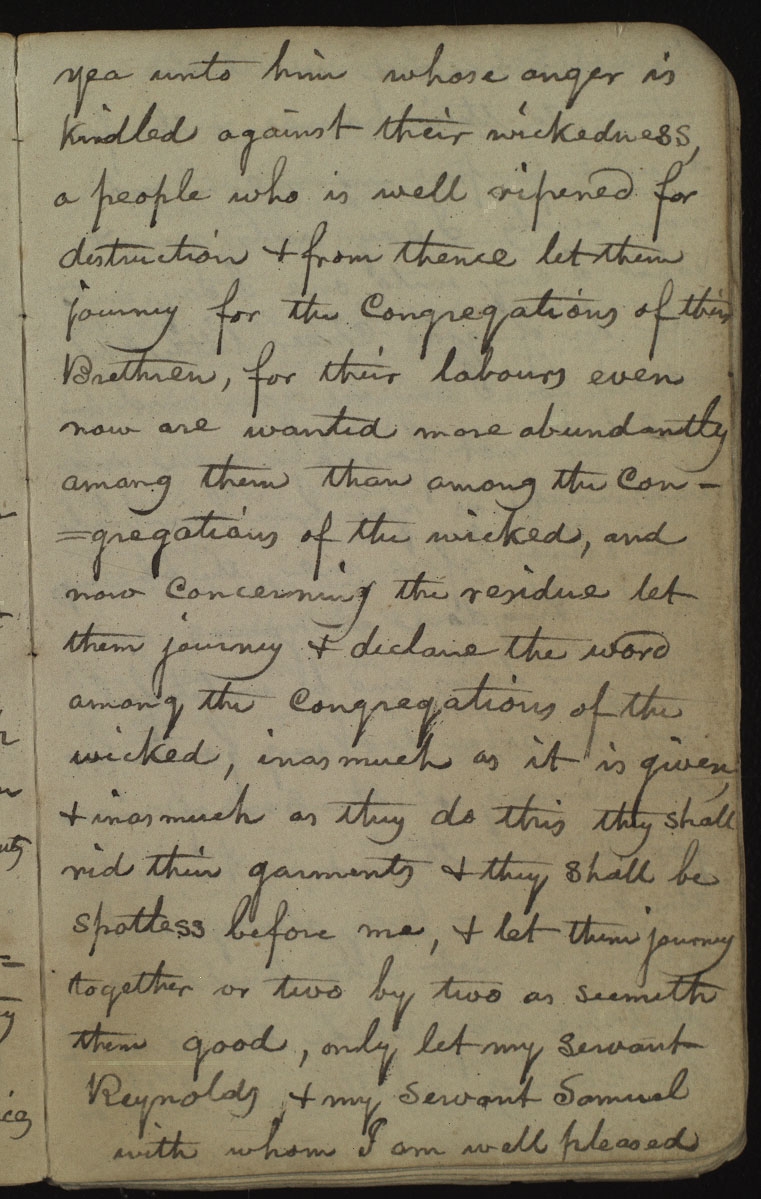 yea unto him whose anger is
kindled against their wickedness,
a people who is well ripened for
distruction & from thence let them
journey for the Congregations of their
Brethren, for their labours even
now are wanted more abundantly
among them than among the Con-
=gregations of the wicked, and
now Concerning the residue let
them journey & declare the word
among the Congregations of the
wicked, inasmuch as it is given,
& inasmuch as they do this they shall
rid their garments & they shall be
spotless before me, & let them journey
together or two by two as seemeth
them good, only let my servant
Reynolds, & my servant Samuel
with whom I am well pleased